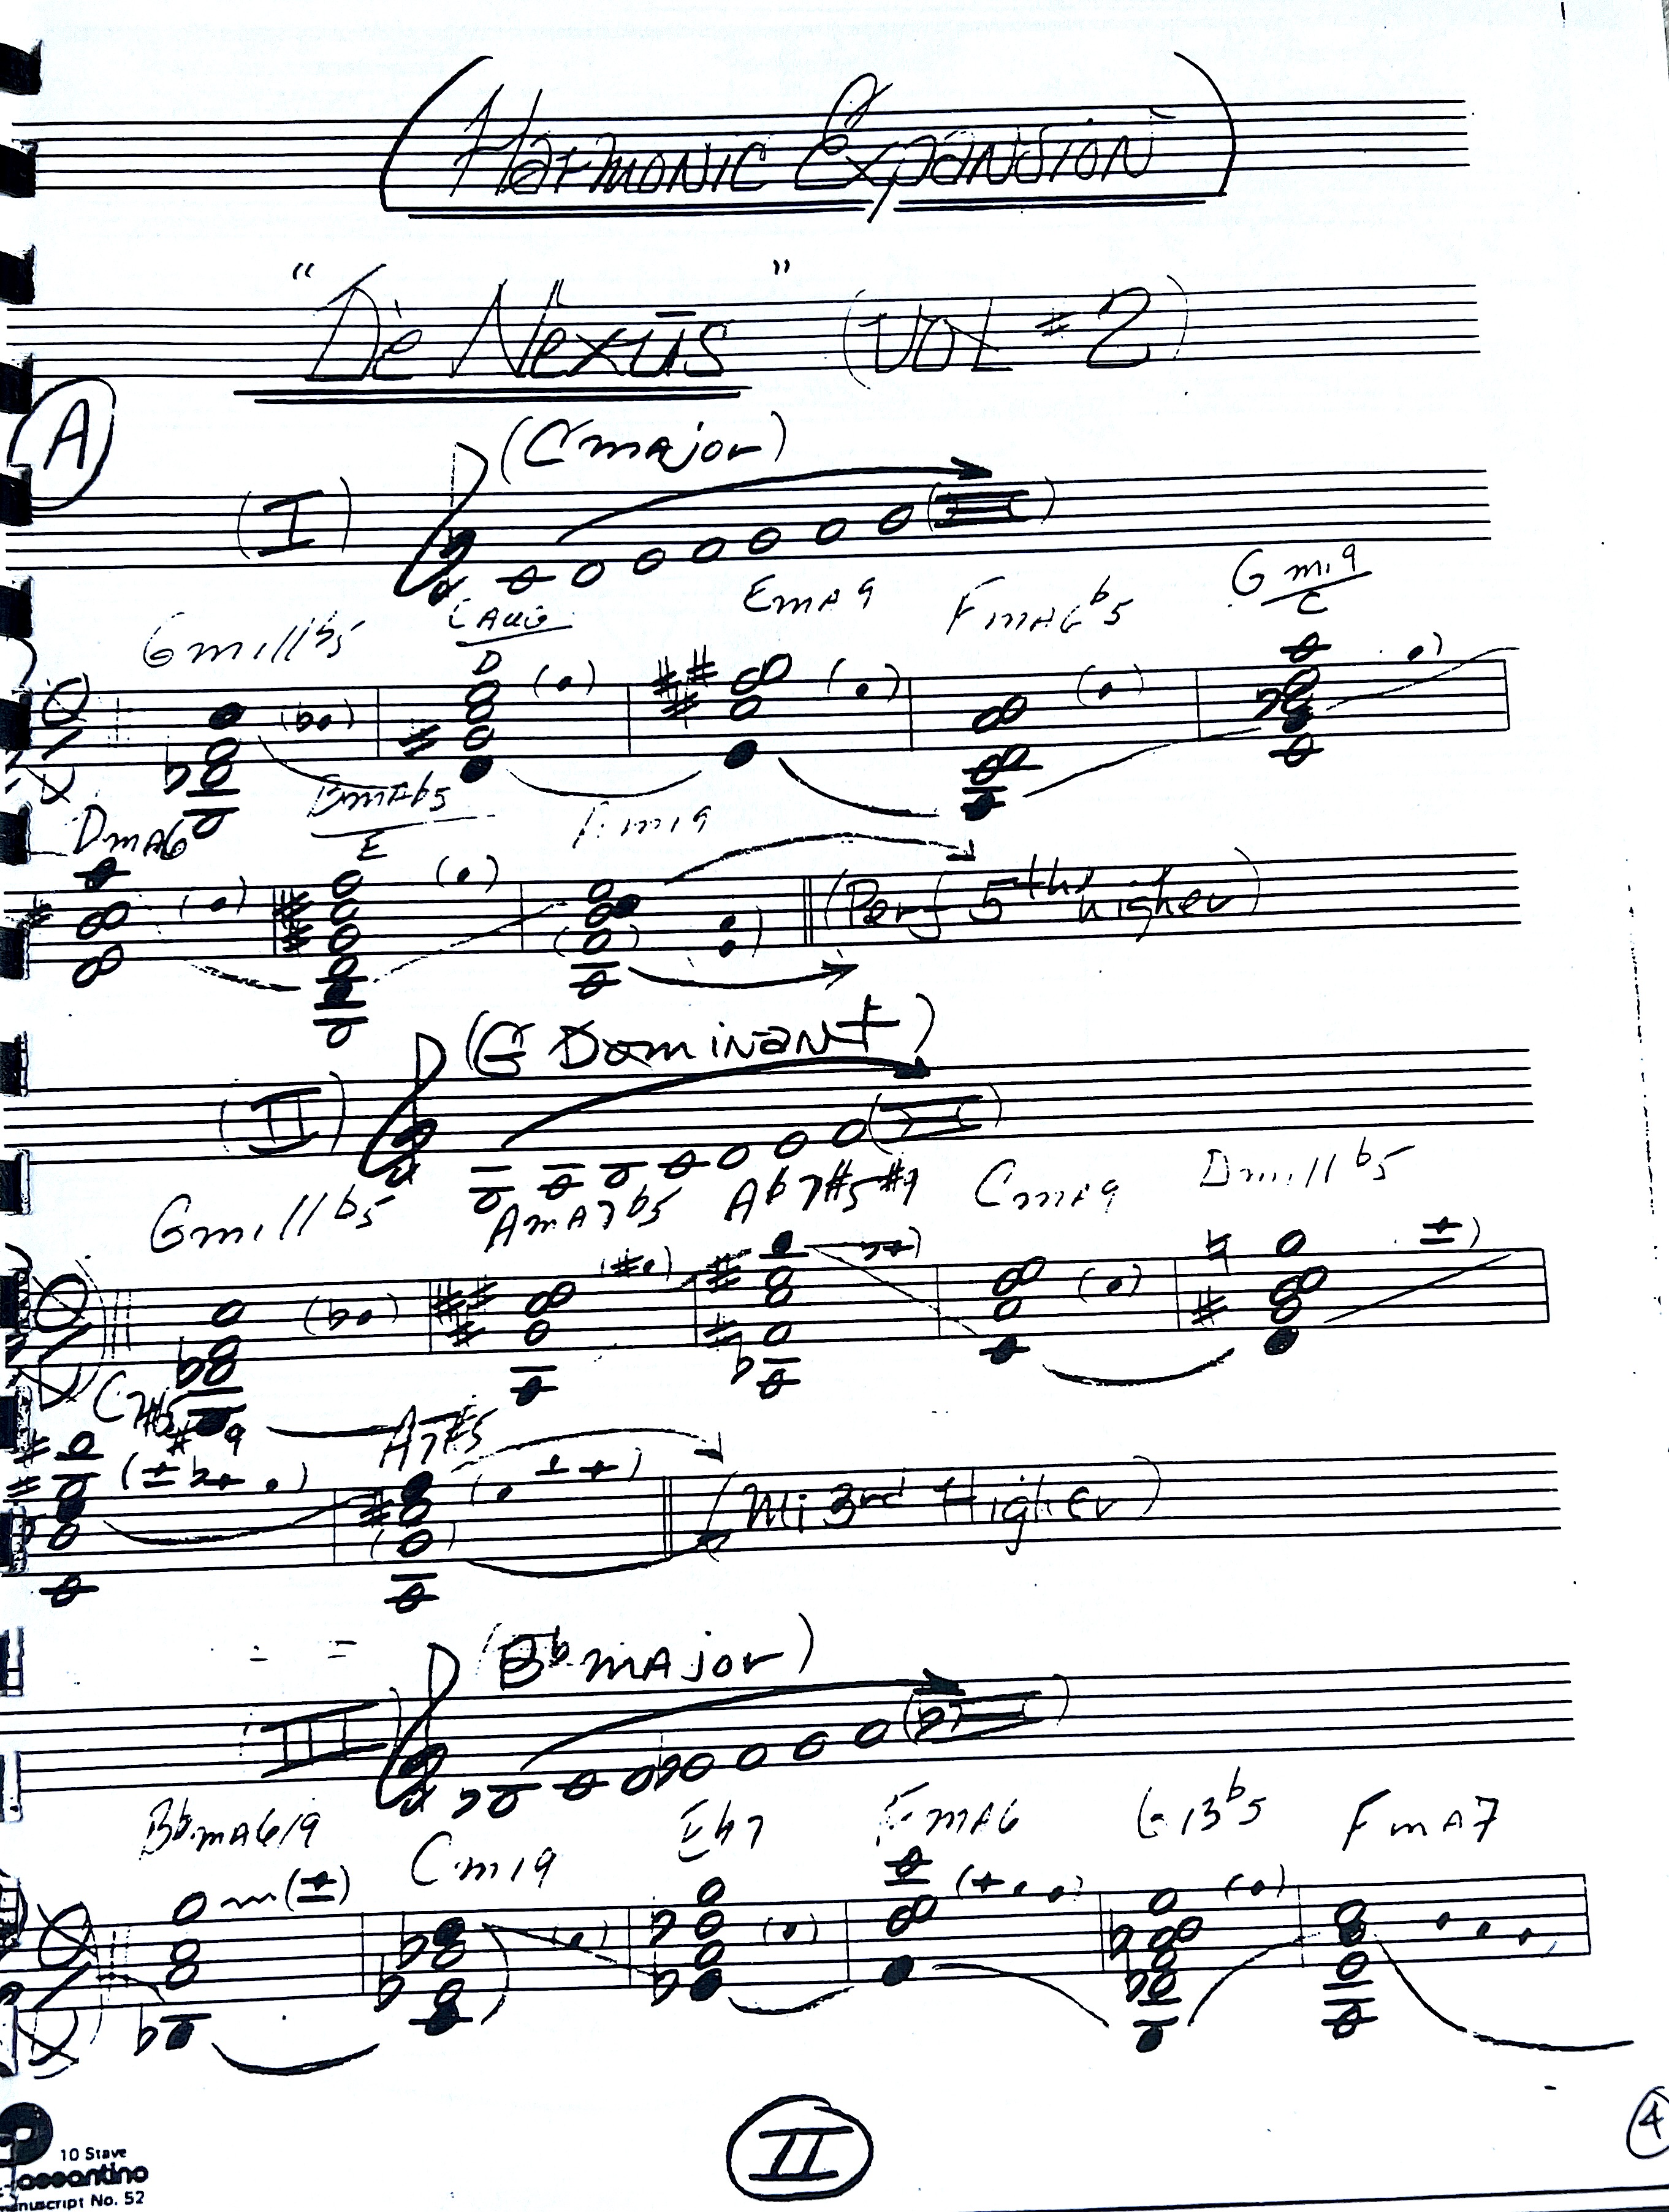 (Harmonic Expansion)
"Dè Nexūs" (VOL #2)
A
(C major)
(I)
Gmi11b5 CAug/D Ema9 FmA6b5 Gmi9/C
DmA6 BmAb5/E mi9
(Perf 5th higher)
(G Dominant)
(II)
Gmi11b5 AmA7b5 Ab7#5#9 CmA9 Dmi11b5
C7#5#9 A7#5
(Mi 3rd Higher)
(Bb major)
(III)
BbmA6/9 Cmi9 Eb7 FmA6 G13b5 FmA7
II
4
10 Stave
Manuscript No. 52